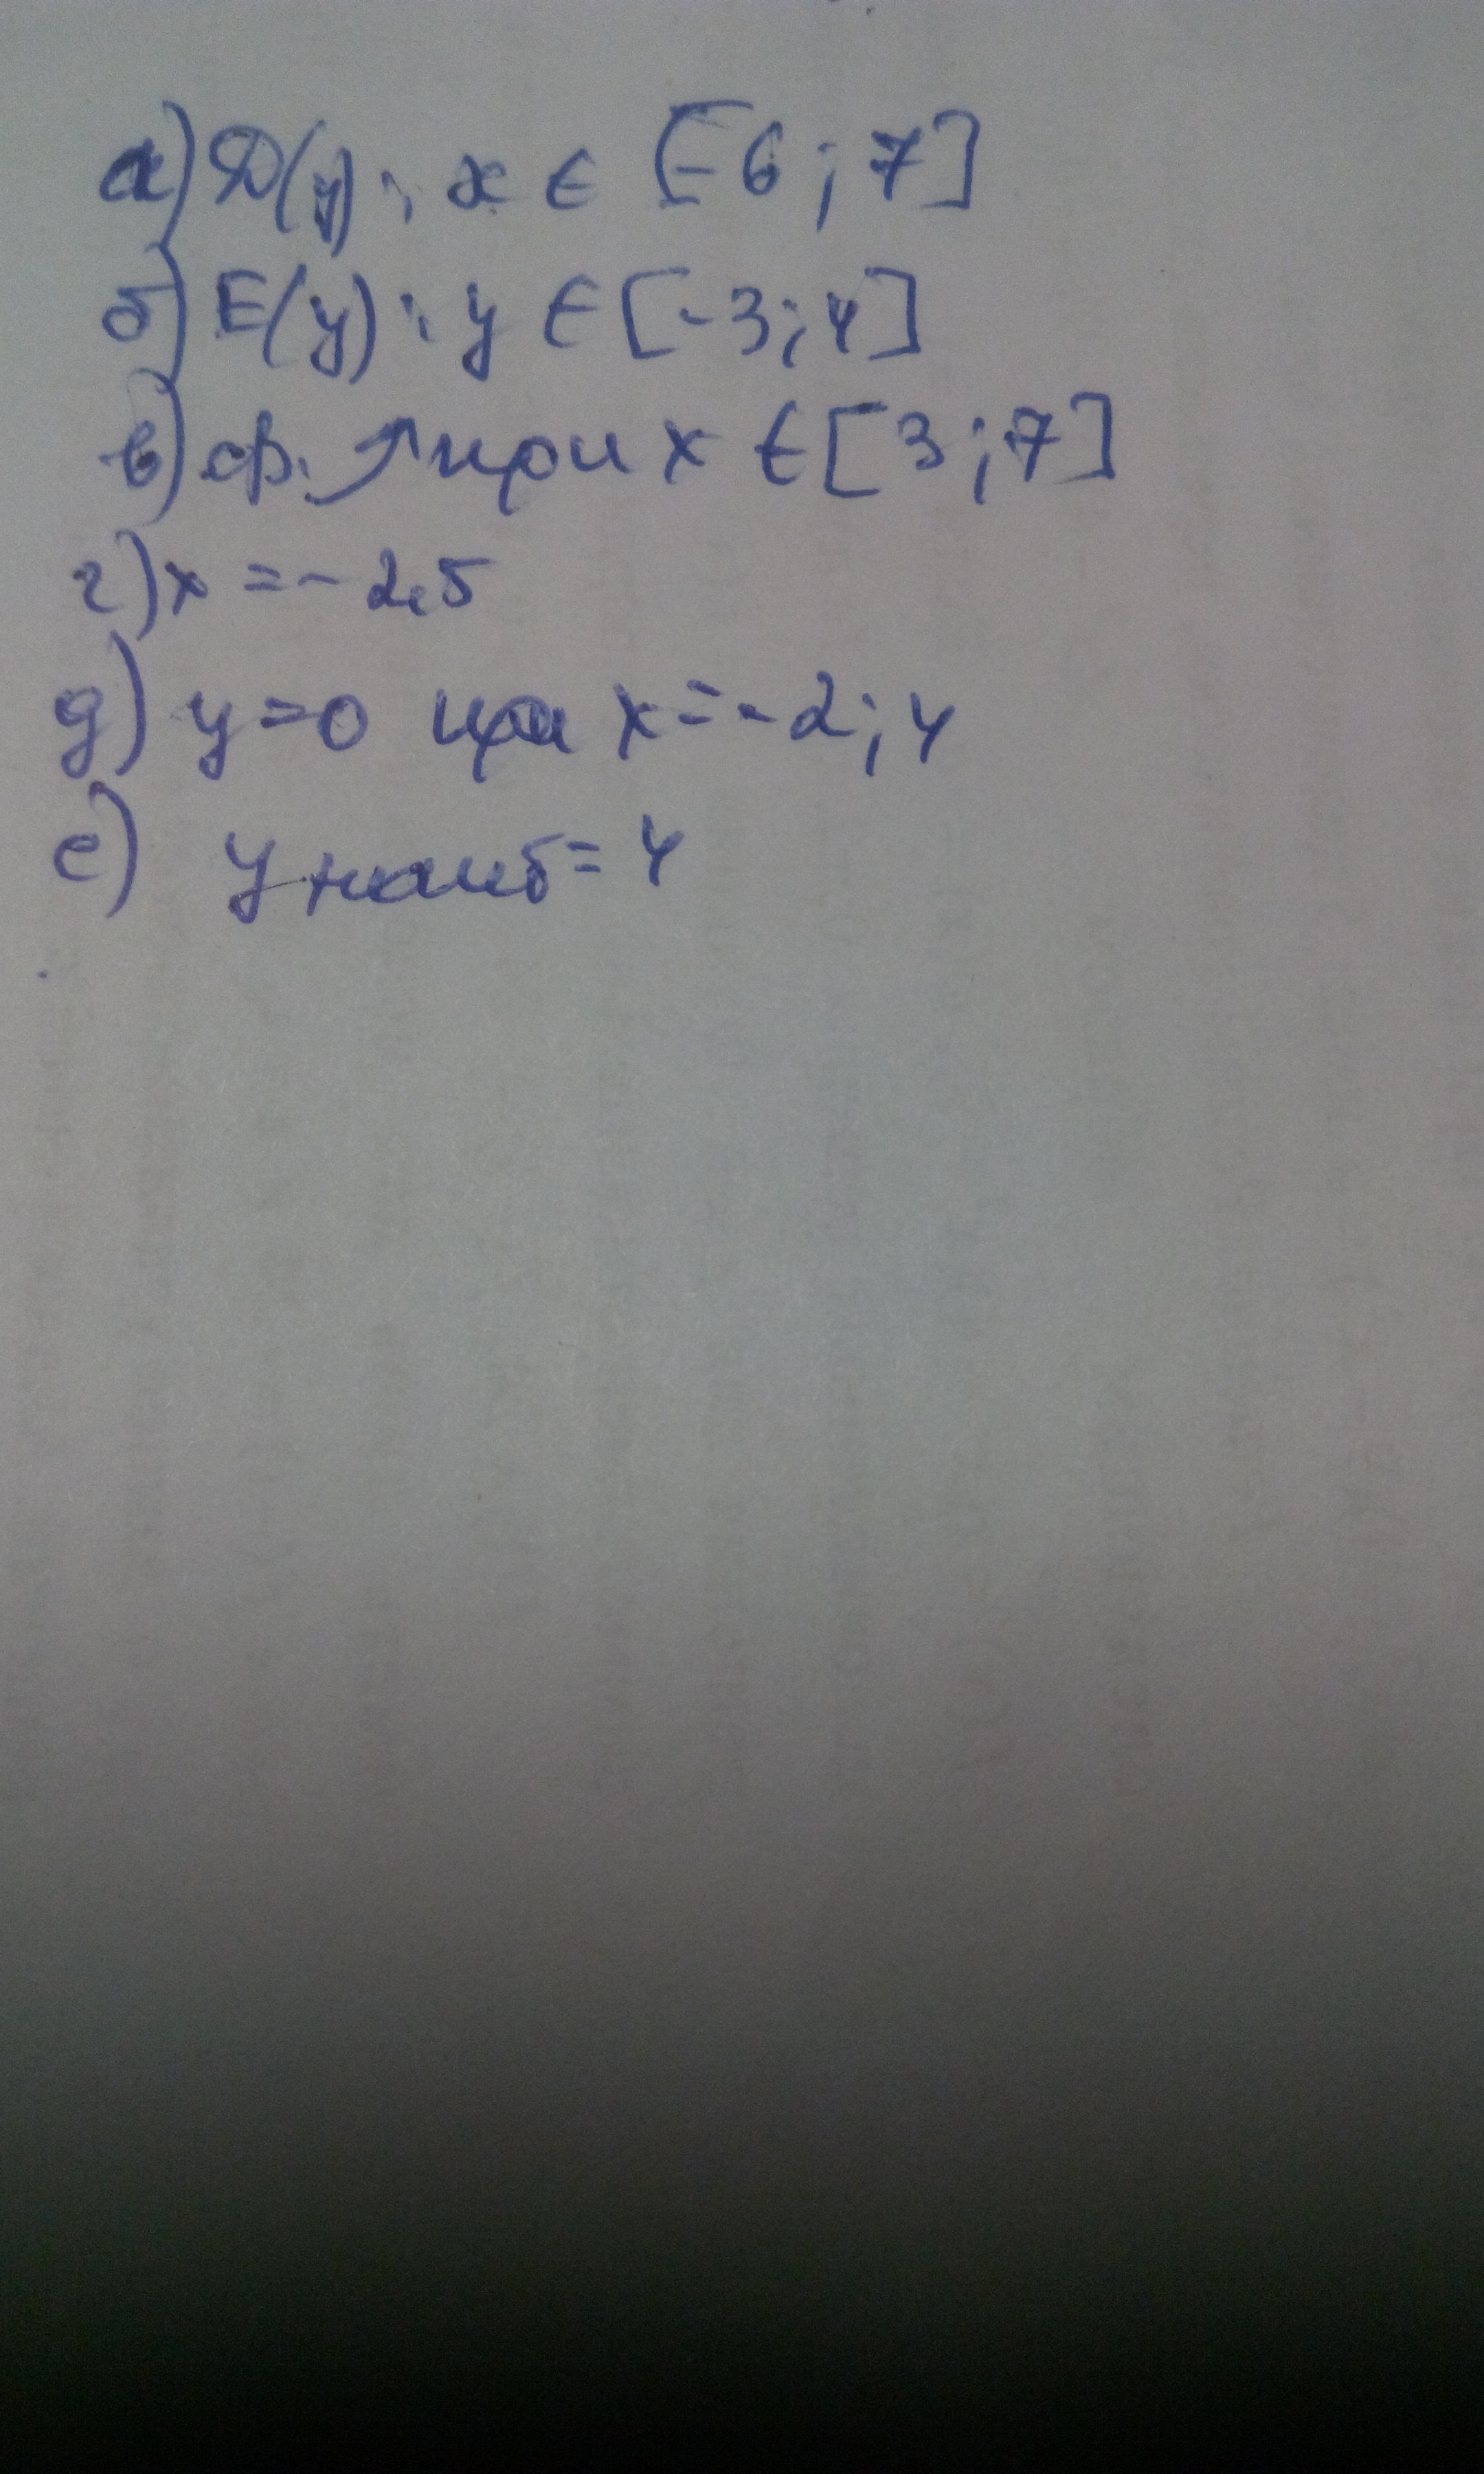 а) D(y): x ∈ [-6; 7]
б) E(y): y ∈ [-3; 4]
в) ф. ↗ при x ∈ [3; 7]
г) x = -2,5
д) y = 0 при x = -2; 4
е) y наиб = 4